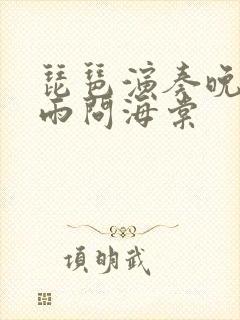 琵琶演奏晚
雨問海棠
項明武